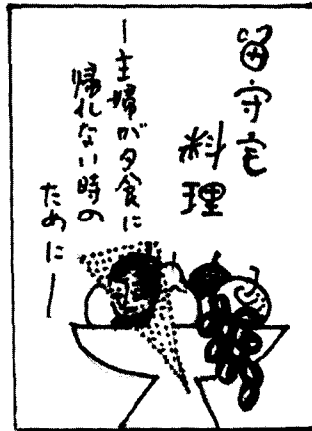 留守宅
料理
―主婦が夕食に
帰れない時の
ために―